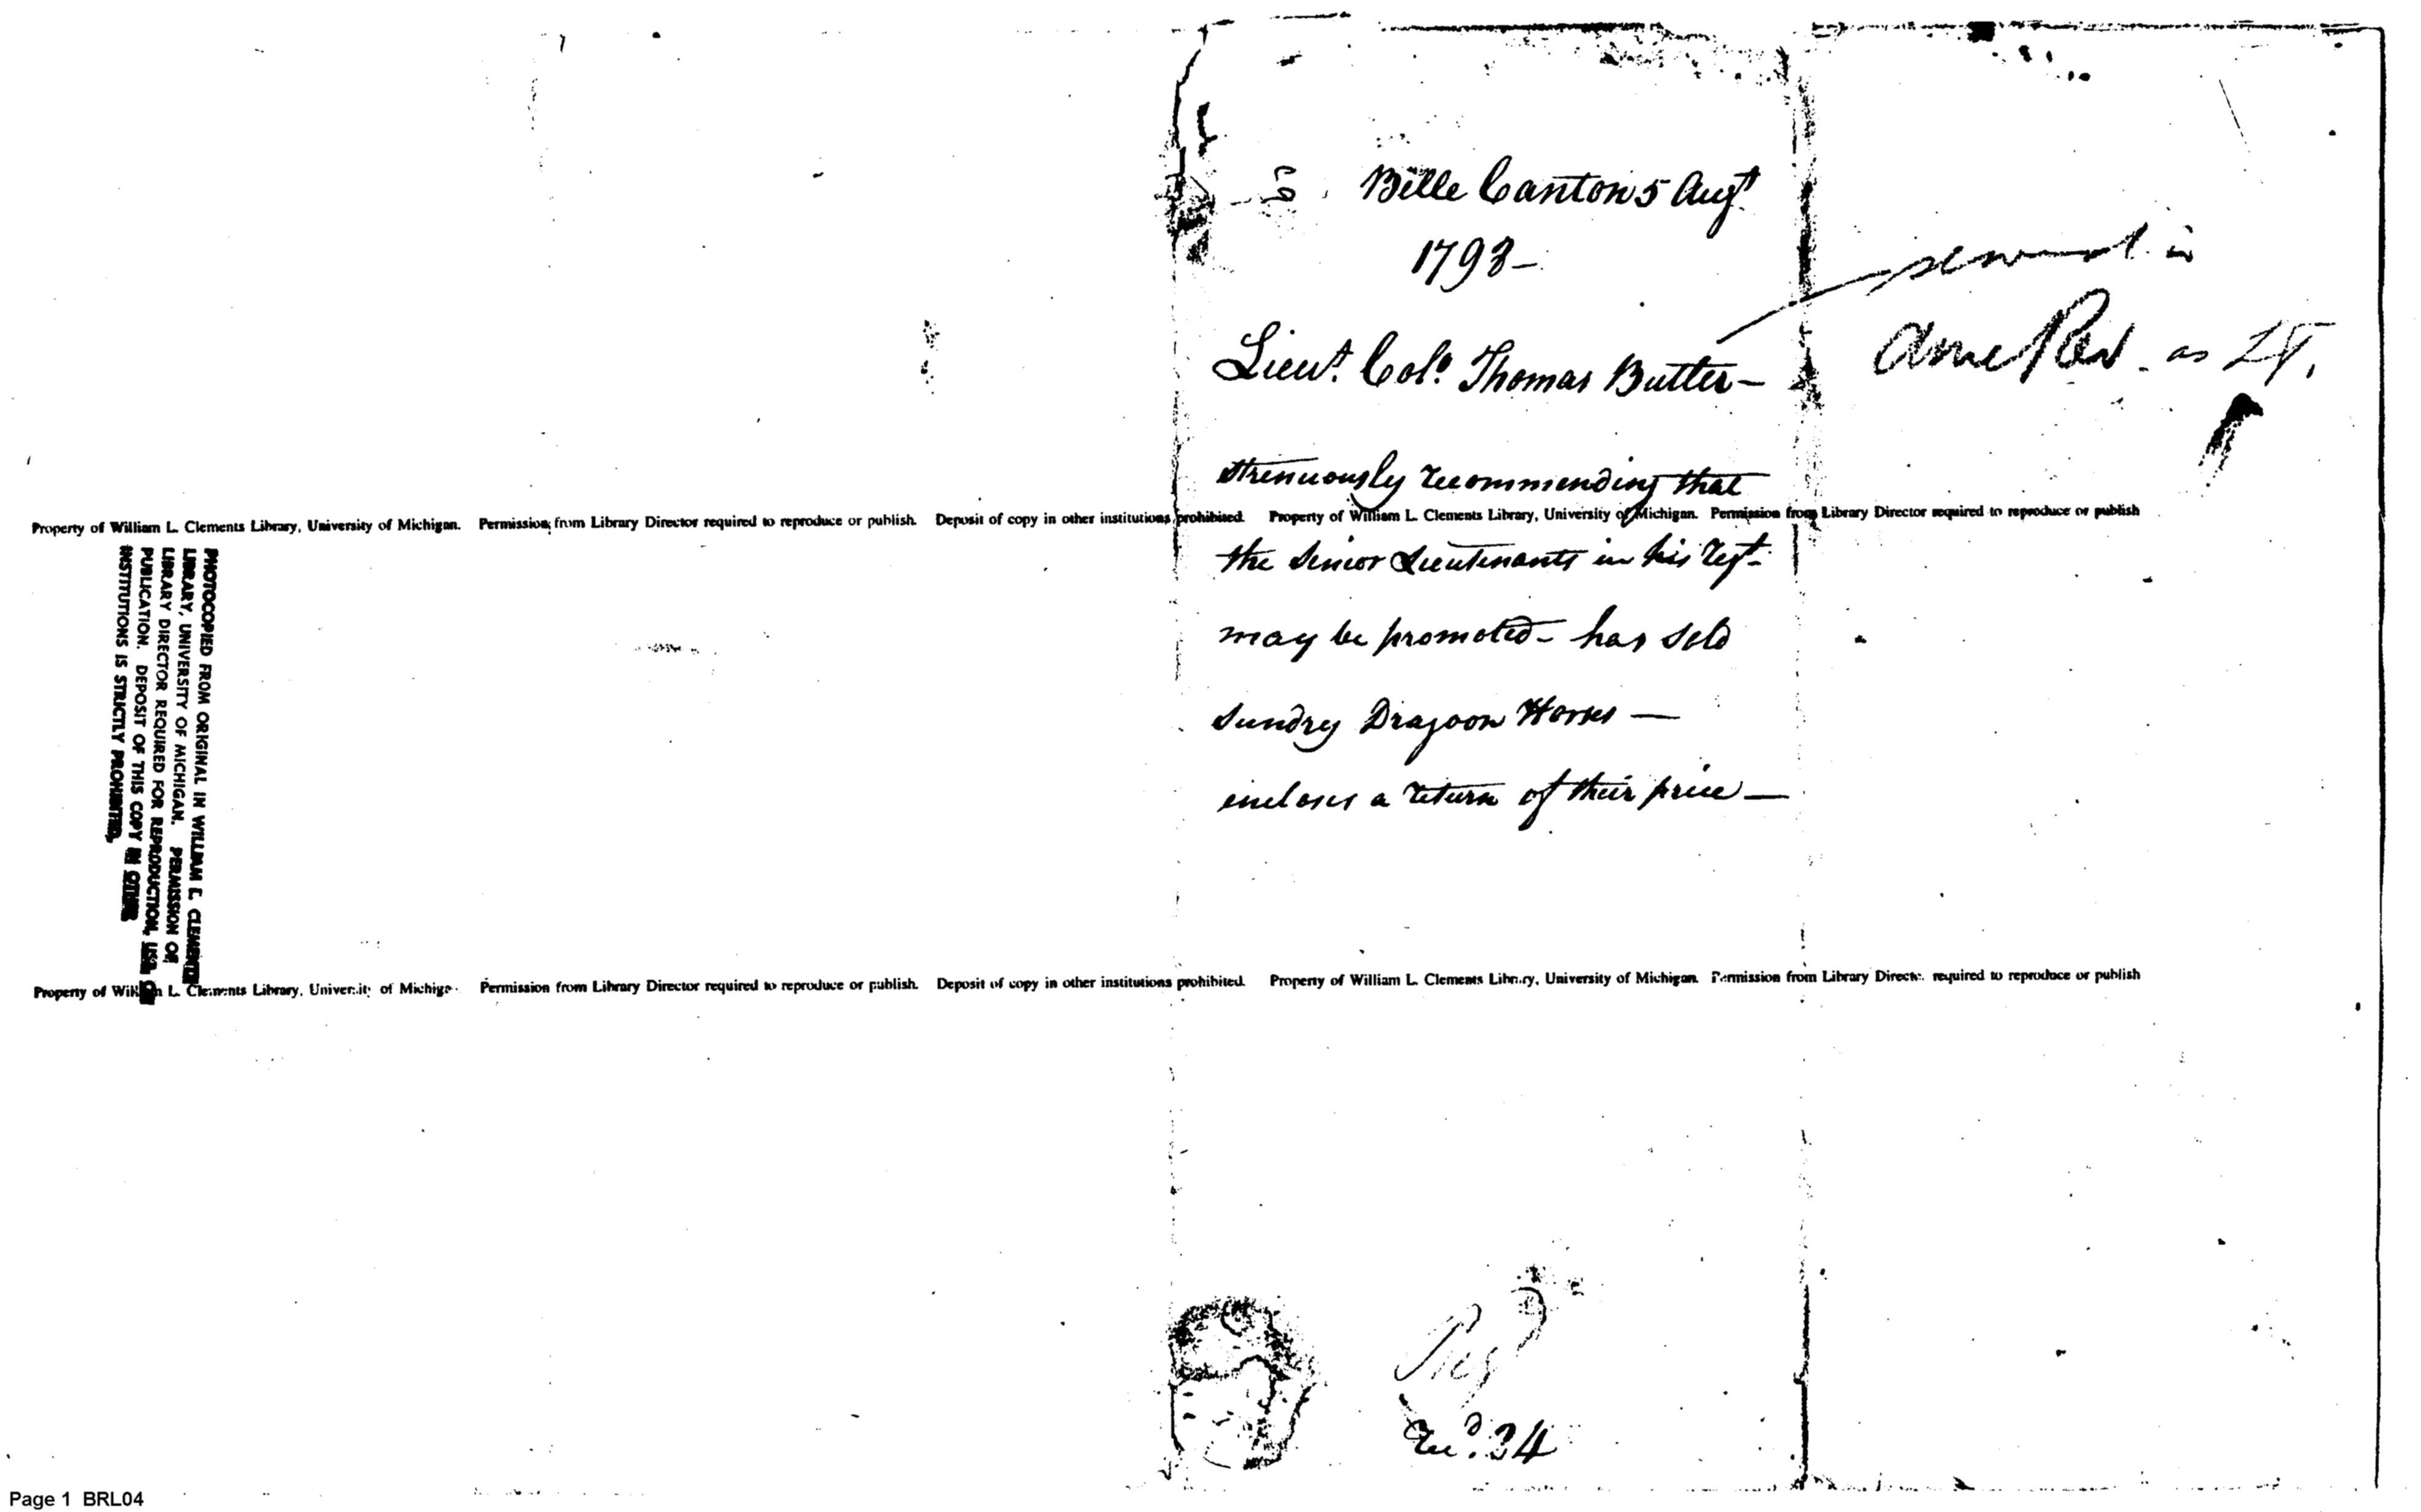 Bille Canton 5 Augt
1793 –
Lieut. Colo. Thomas Butler –
served in
Ame Rev. as Lt.
strenuously recommending that
the senior Lieutenants in his regt.
may be promoted – has sold
sundry Dragoon Horses —
encloses a return of their price —
Regd
Property of William L. Clements Library, University of Michigan. Permission from Library Director required to reproduce or publish. Deposit of copy in other institutions prohibited. Property of William L. Clements Library, University of Michigan. Permission from Library Director required to reproduce or publish
PHOTOCOPIED FROM ORIGINAL IN WILLIAM L. CLEMENTS
LIBRARY, UNIVERSITY OF MICHIGAN. PERMISSION OF
LIBRARY DIRECTOR REQUIRED FOR REPRODUCTION, USE, OR
PUBLICATION. DEPOSIT OF THIS COPY IN OTHER
INSTITUTIONS IS STRICTLY PROHIBITED.
Property of William L. Clements Library, University of Michigan. Permission from Library Director required to reproduce or publish. Deposit of copy in other institutions prohibited. Property of William L. Clements Library, University of Michigan. Permission from Library Director required to reproduce or publish
34
Page 1 BRL04